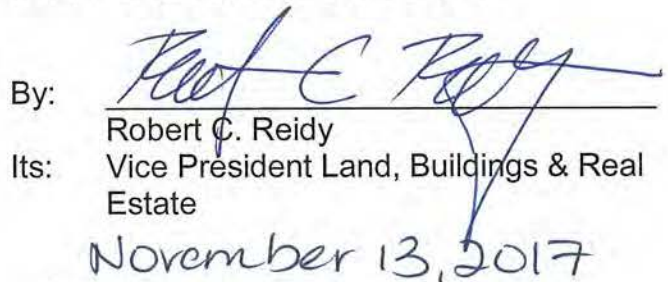 By: Robert C. Reidy
Robert C. Reidy
Its: Vice President Land, Buildings & Real
Estate
November 13, 2017